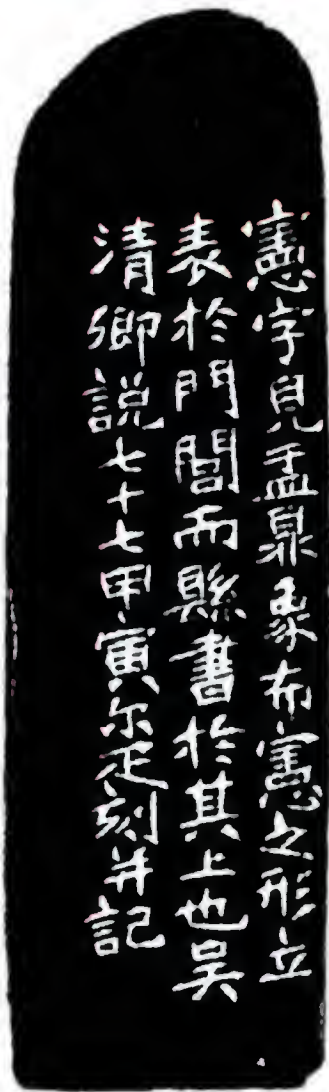 憲字見盂鼎象布憲之形立
表於門閭而縣書於其上也吳
清卿説七十七甲寅尔疋刻并記